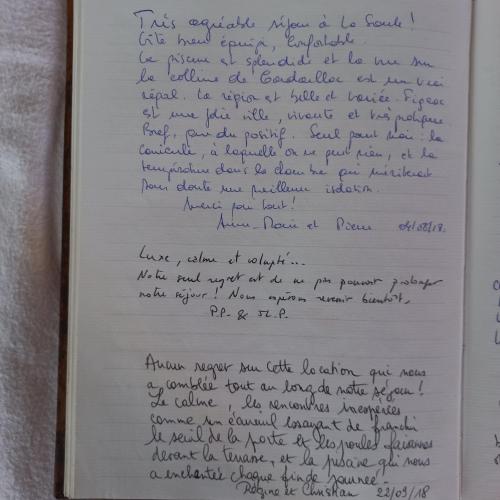 Très agréable séjour à La Soule !
Gîte bien équipé, confortable.
La piscine est splendide et la vue sur
la colline de Cardaillac est un vrai
régal. La région est belle et variée. Figeac
est une jolie ville, vivante et très
Bref, que du positif. Seul point noir : la
canicule, à laquelle on ne peut rien, et la
température dans la chambre qui mériterait
sans doute une meilleure isolation.
Merci pour tout !
Anne-Marie et Pierre 04/08/18.
Luxe, calme et volupté...
Notre seul regret est de ne pas pouvoir prolonger
notre séjour ! Nous espérons revenir bientôt.
P.P. &
Aucun regret sur cette location qui nous
a comblée tout au long de notre séjour !
Le calme, les rencontres inespérées
comme un écureuil essayant de franchir
le seuil de la porte et les poules faisanes
devant la terrasse, et la piscine qui nous
a enchantée chaque fin de journée.
Régine et Christian 22/09/18